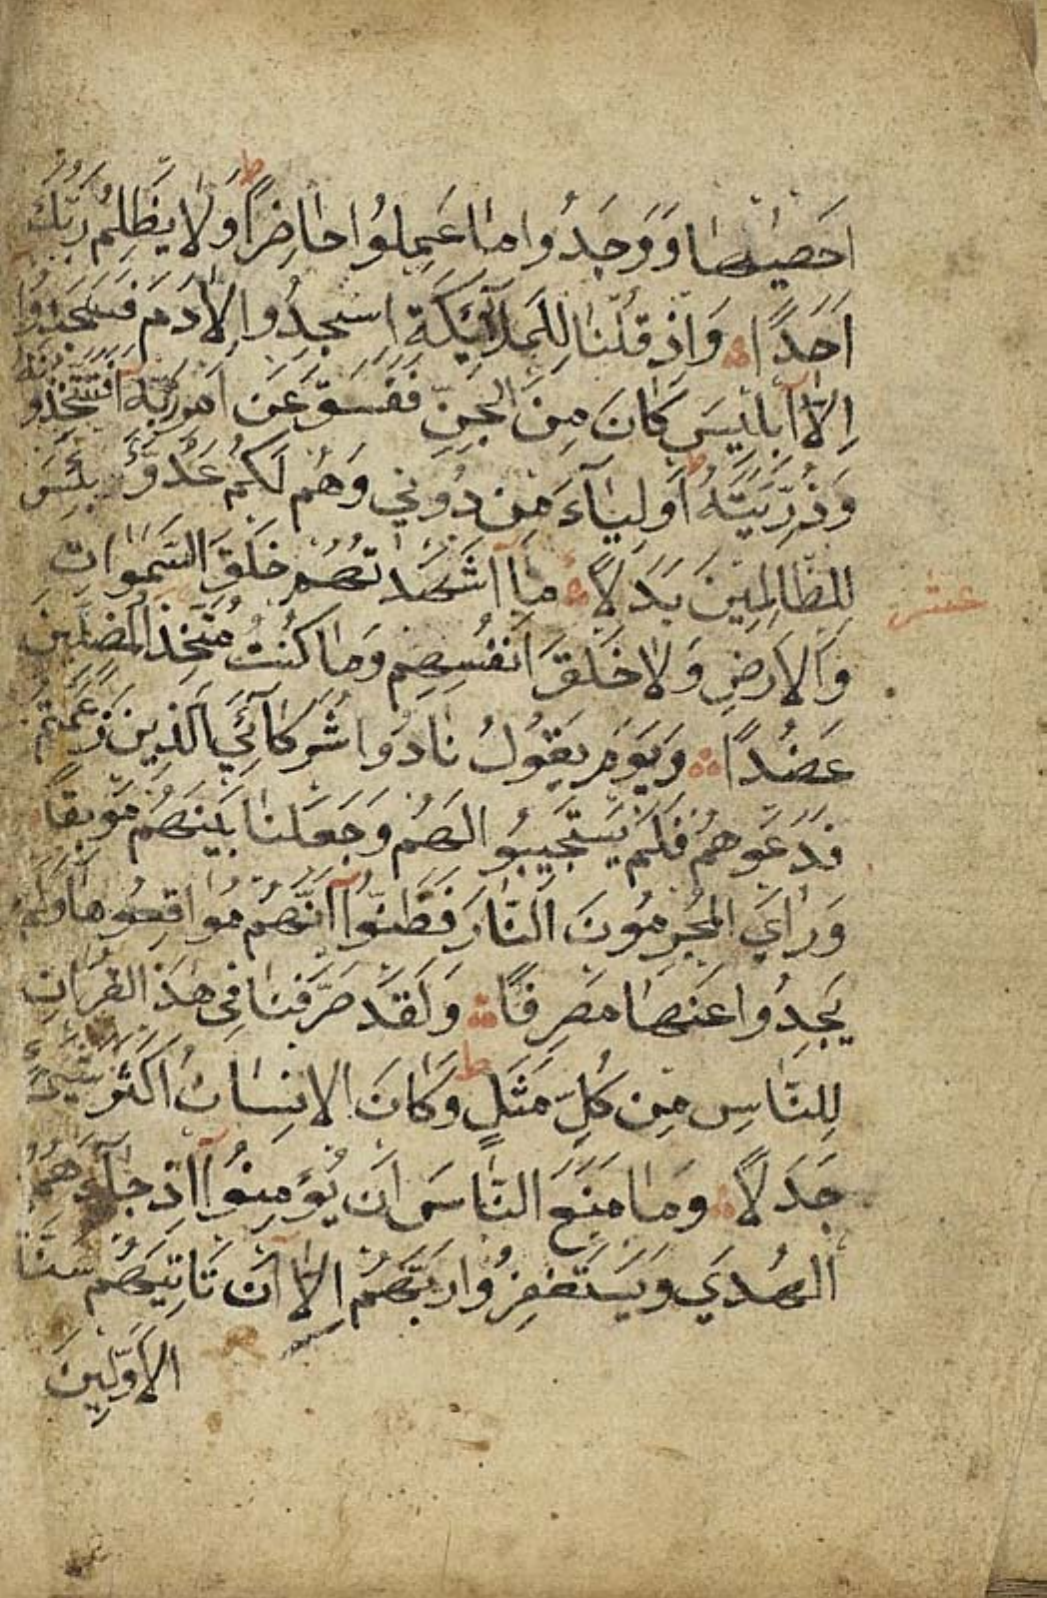 احصيٰها وَوَجَدُوا ماعَمِلُوا حاضِراً ط وَلا يَظلِمُ رَبُّكَ
اَحَدًا وَاِذ قُلنا لِلمَلآئِكَةِ اسجُدُوا لِاٰدَمَ فَسَجَدُوا
اِلّا اِبليسَ كانَ مِنَ الجِنِّ فَفَسَقَ عَن اَمرِ رَبِّه اَفَتَتَّخِذُونَهُ
وَذُرِّيَّتَهُ اَولِيآءَ مِن دُوني وَهُم لَكُم عَدُوٌّ ط بِئسَ
لِلظّالِمِينَ بَدَلاً ما اَشهَدتُهُم خَلقَ السَّمٰواتِ
عشر
وَالاَرضِ وَلا خَلقَ اَنفُسِهِم وَما كُنتُ مُتَّخِذَ المُضِلِّينَ
عَضُدًا وَيَومَ يَقُولُ نادُوا شُرَكآئِيَ الَّذِينَ زَعَمتُم
فَدَعَوهُم فَلَم يَستَجيبُوا لَهُم وَجَعَلنا بَينَهُم مَوبِقاً
وَرَاَي المُجرِمُونَ النّارَ فَظَنُّوا اَنَّهُم مُواقِعُوها وَلَم
يَجِدُوا عَنها مَصرِفًا وَلَقَد صَرَّفنا فِى هٰذَا القُراٰنِ
لِلنّاسِ مِن كُلِّ مَثَلٍ ط وَكانَ الاِنسانُ اَكثَرَ شَيءٍ
جَدَلاً وَما مَنَعَ النّاسَ اَن يُؤمِنُوا اِذ جآءَهُمُ
الهُدَي وَيَستَغفِرُوا رَبَّهُم اِلّا اَن تَاتِيَهُم سُنَّةُ
الاَوَّلِينَ